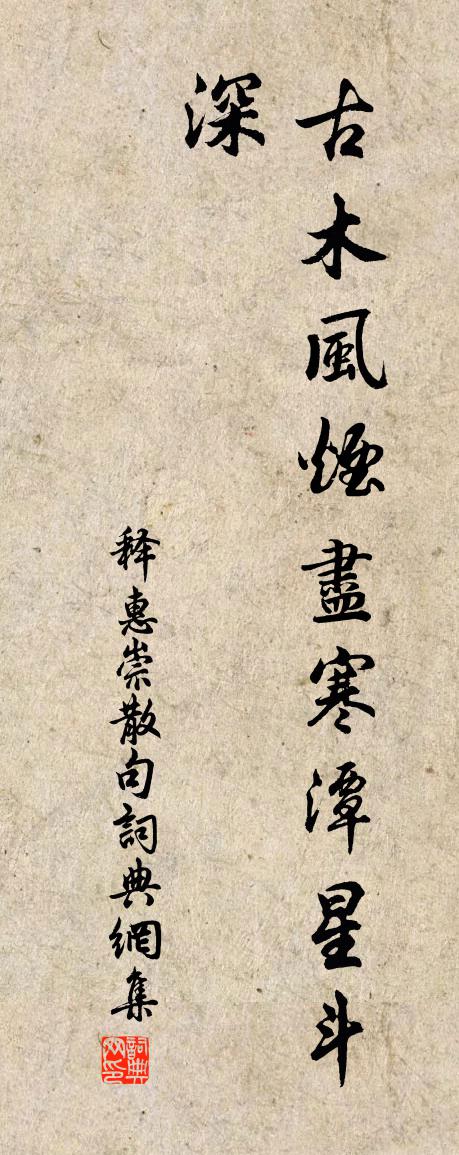 古木風煙盡寒潭星斗
深
释惠崇散句詞典網集
詞典
网印